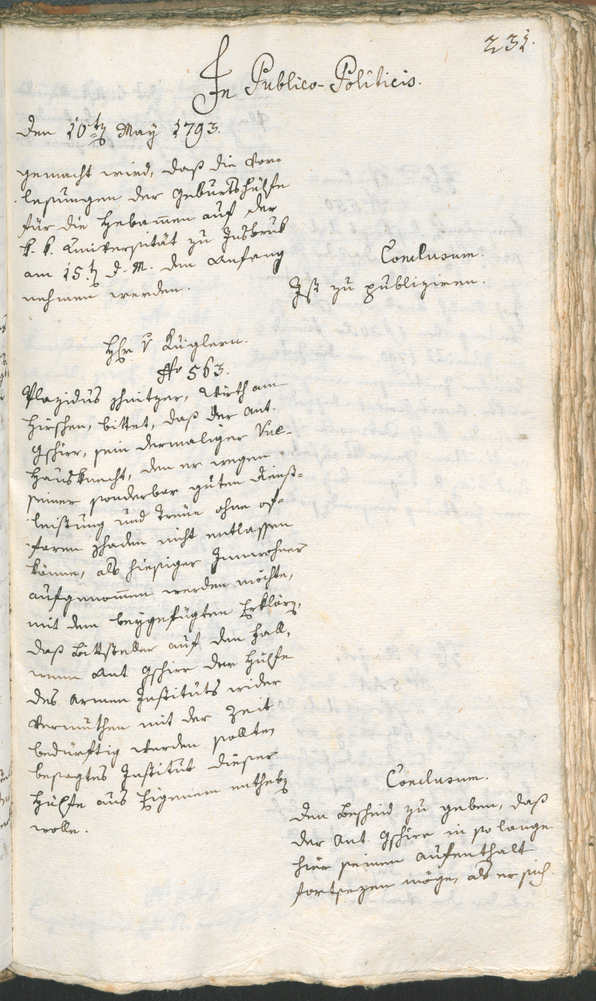 231.
In Publico-Politicis.
den 10ten May 1793.
gemacht wird, daß die Vor-
lesungen der Geburtshülfe
für die Hebamen auf der
k. k. Universität zu Insbruk
am 15t d. M. den Anfang
nehmen werden.
Conclusum.
Ist zu publiziren.
Hr v Kuglern.
No 563.
Plazidus Schnitzer, Wirth am
Hirschen, bittet, daß der Ant.
Gschier, sein dermaliger
Hausknecht, den er wegen
seiner sonderbar guten Dienst-
leistung und Treue ohne
schaden nicht entlassen
könne, als hiesiger Innwohner
aufgenommen werden möchte,
mit dem beygefügten Erklärn,
daß Bittsteller auf den Fall,
wenn Ant Gschier der Hülfe
des Armen Instituts wider
Vermuthen mit der Zeit
bedürftig werden sollte
besagtes Institut dieser
Hülfe aus Eigenem entheben
wolle.
Conclusum.
Den Bescheid zu geben, daß
der Ant. Gschier in so lange
hier seinen Aufenthalt
fortsezen möge, als er sich